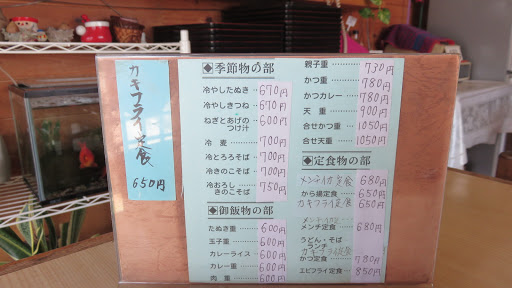 カキフライ定食
650円
◆季節物の部
冷やしたぬき…670円
冷やしきつね…670円
ねぎとあげの
つけ汁…600円
冷麦…700円
冷とろろそば…700円
冷きのこそば…700円
冷おろし
きのこそば…750円
◆御飯物の部
たぬき重…600円
玉子重…600円
カレーライス…600円
カレー重…600円
肉重…600円
親子重…730円
かつ重…780円
かつカレー…780円
天重…900円
合せかつ重…1050円
合せ天重…1050円
◆定食物の部
メンチイカ定食…680円
から揚定食…650円
カキフライ定食 650円
メンチ定食…680円
うどん・そば
ランチ
かつ定食…780円
エビフライ定食…850円